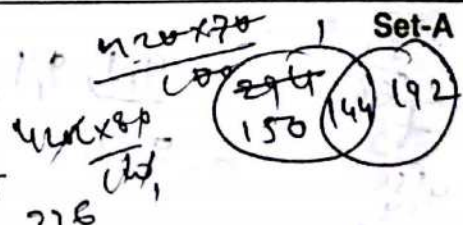 Set-A
420×70
100
1
294
150 144 192
420×80
100
336